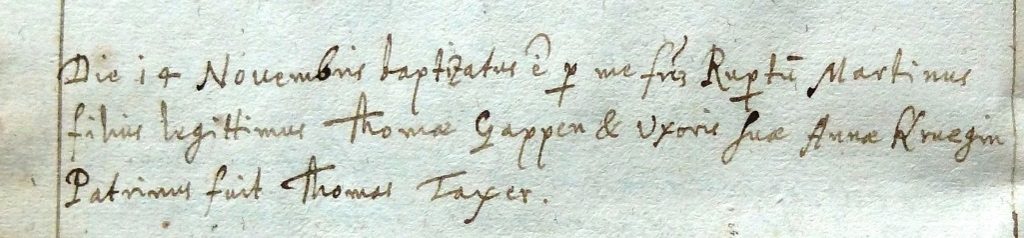 Die 14 Novembris baptizatus ē p me frēz Ruptū Martinus
filius legittimus Thomæ Gappen & Uxoris suæ Annæ Kruegin
Patrinus fuit Thomas Taxer.